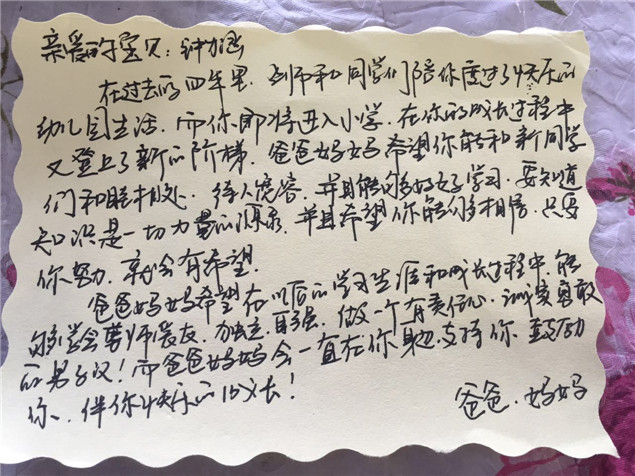 亲爱的宝贝：钟
在过去的四年里，老师和同学们陪你度过了快乐的
幼儿园生活，而你即将进入小学，在你的成长过程中
又登上了新的阶梯。爸爸妈妈希望你能和新同学
们和睦相处，待人宽容，并且能够多好好学习，要知道
知识是一切力量的源泉，并且希望你能够相信，只要
你努力，就会有希望。
爸爸妈妈希望在以后的学习生涯和成长过程中，能
够学会尊师爱友，独立，自强，做一个有责任心，诚实勇敢
的男子汉！而爸爸妈妈会一直在你身边，支持你，鼓励
你、伴你快乐的成长！
爸爸、妈妈